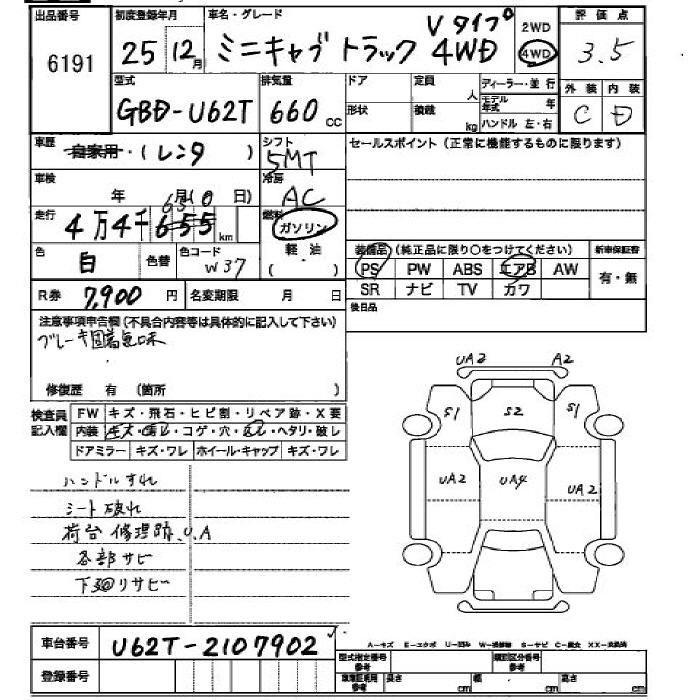 出品番号 初度登録年月 車名・グレード 2WD 評価点
6191 25 12月 ミニキャブ トラック Vタイプ 4WD 4WD 3.5
型式 排気量 ドア 定員 人 ディーラー・並行 外装 内装
GBD-U62T 660 cc 形状 積載 kg モデル年式 年 C D
ハンドル 左・右
車歴 自家用・(レンタ) シフト 5MT セールスポイント(正常に機能するものに限ります)
車検 年 月( 日) 冷房 AC
走行 4万4千655km 燃料 ガソリン
軽油
( )
色 白 色替 色コード W37
装備品(純正品に限り〇をつけてください) 新車保証書
PS PW ABS エアB AW 有・無
SR ナビ TV カワ
R券 7,900円 名変期限 月 日
後日品
注意事項申告欄(不具合内容等は具体的に記入して下さい)
ブレーキ固着気味
修復歴 有 (箇所 )
検査員記入欄 FW キズ・飛石・ヒビ割・リペア跡・X要
内装 キズ・汚レ・コゲ・穴・ヘタリ・破レ
ドアミラー キズ・ワレ ホイール・キャップ キズ・ワレ
ハンドルすれ
シート破れ
荷台 修理跡、U、A
各部サビ
下回りサビ
UA2 A2
S1 S2 S1
UA2 UA4 UA2
車台番号 U62T-2107902
A-キズ E-エクボ U-凹み S-サビ
登録番号
型式指定番号 参考 類別区分番号 参考
参考 長さ cm 幅 cm 高さ cm